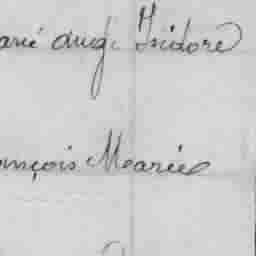 arie ange Isidore
ançois Marie